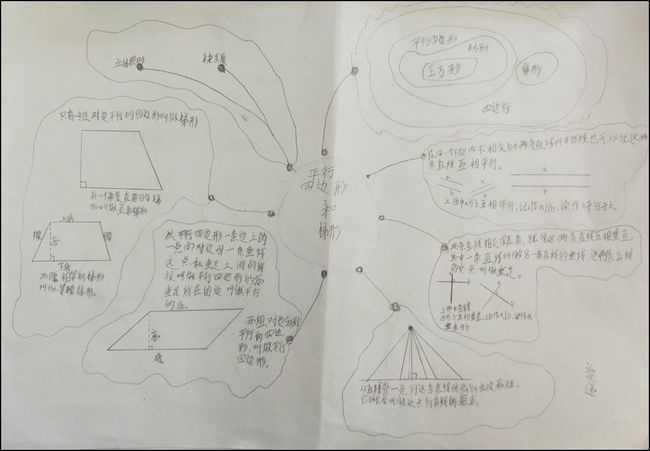 平行四边形
正方形
梯形
四边行
只有一组对边平行的四边形叫做梯形
有一个角是直角的梯
上底
腰
高
腰
下底
两腰相等的梯形
叫做等腰梯形。
平行
四边形
和
梯形
从平行四边形一条边上的
一点向对边引一条垂线
这点和垂足之间的线
段叫做平行四边形的高
垂足所在的边叫做平行
的底。
高
底
两组对边分别
平行的四边
形，叫做平行
四边形。
在同一个平面内不相交的两条直线叫平行线也可以说这两
条直线互相平行。
a
b
上图中a与b互相平行，记作a//b，读作a平行于b。
两条直线相交成直角，就说这两条直线互相垂直，
其中一条直线叫做另一条直线的垂线，这两条直线
的交点叫做垂足。
从直线外一点到这条直线所画的垂线最短，